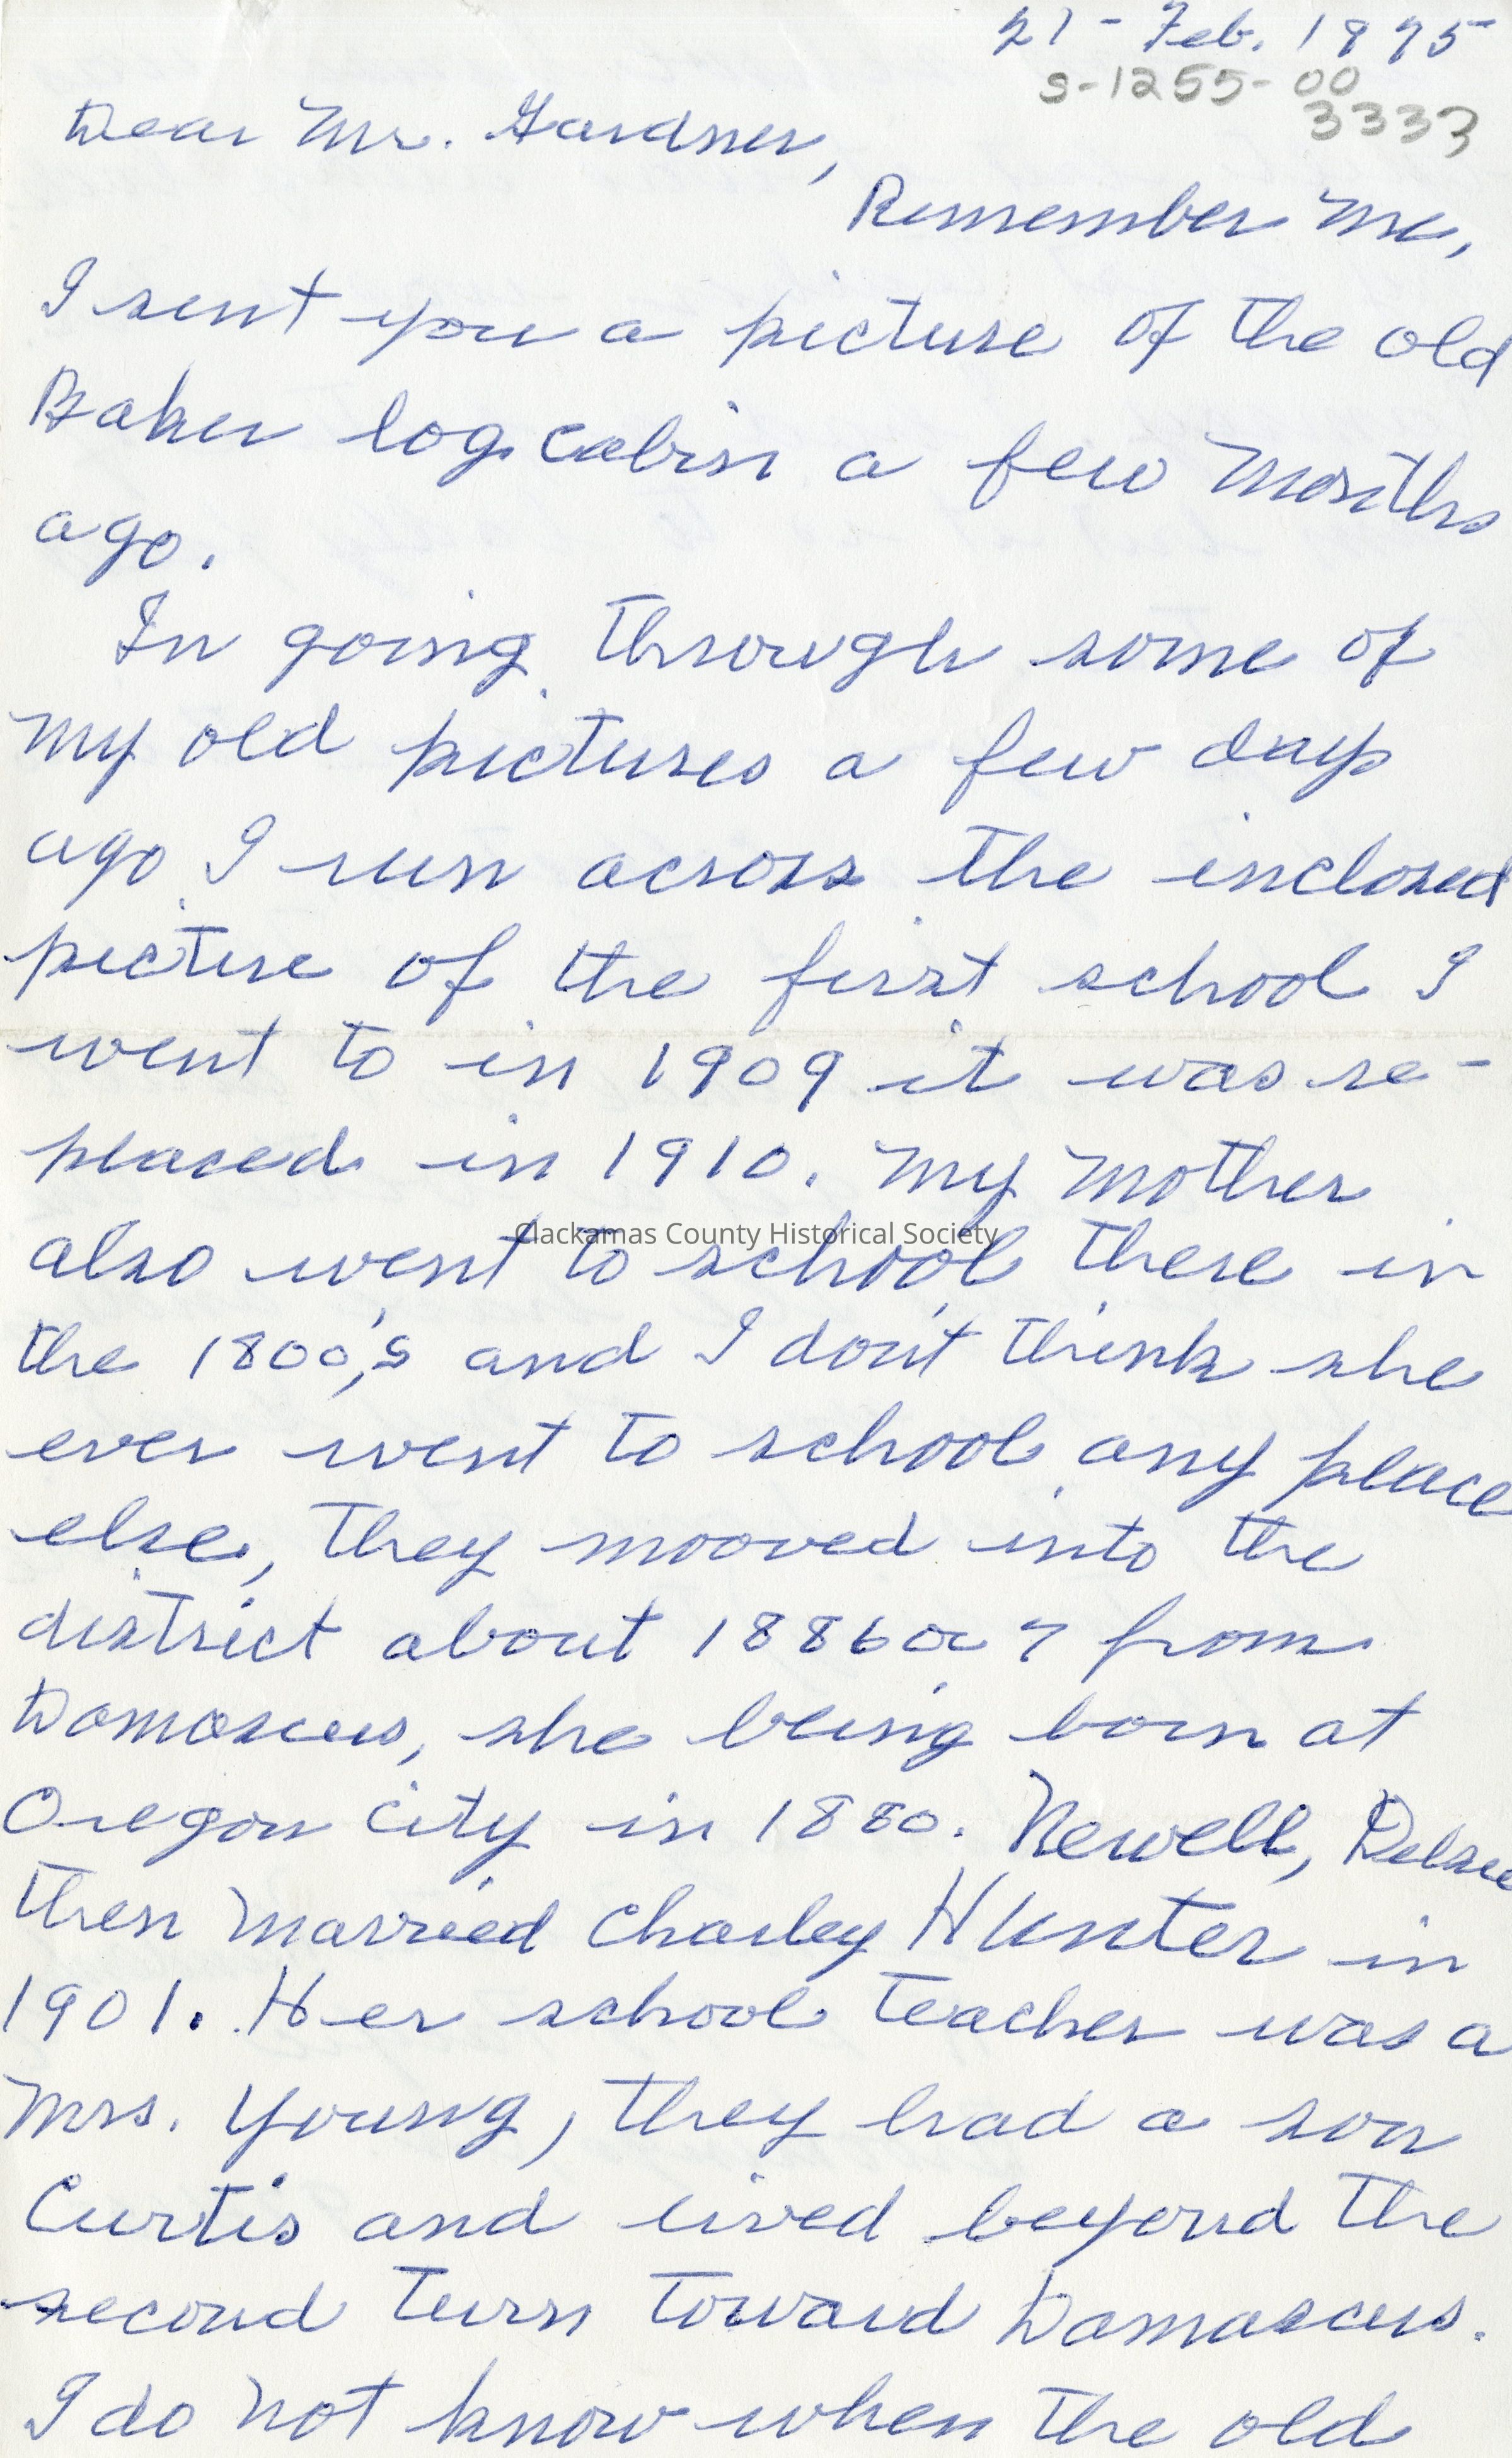 21 - Feb. 1975
S-1255-00
3333
Dear Mr. Gardner,
Remember me,
I sent you a picture of the old
Baker log cabin a few months
ago.
In going through some of
my old pictures a few days
ago I run across the inclosed
picture of the first school I
went to in 1909 it was re-
placed in 1910. My Mother
also went to school there in
the 1800,'s and I don't think she
ever went to school any place
else, they mooved into the
district about 1886 or 7 from
Damascus, she being born at
Oregon City in 1880. Newell,
then married Charley Hunter in
1901. Her school teacher was a
Mrs. Young, they had a son
Curtis and lived beyond the
second turn toward Damascus.
I do not know when the old
Clackamas County Historical Society